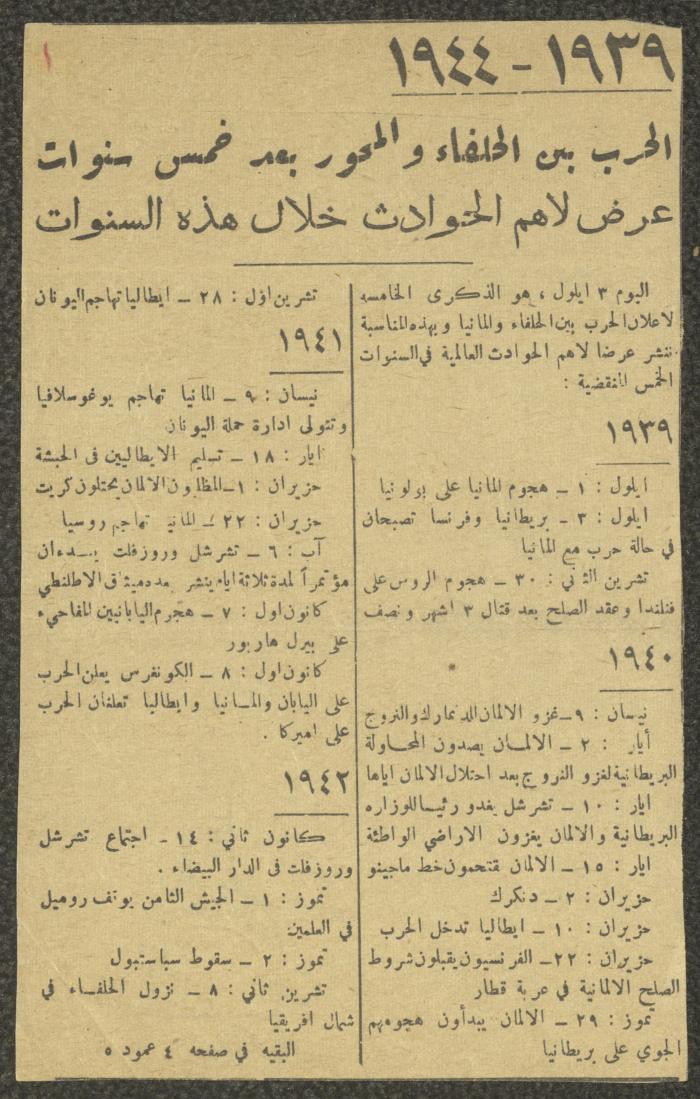 ١
١٩٣٩ - ١٩٤٤
الحرب بين الحلفاء والمحور بعد خمس سنوات
عرض لاهم الحوادث خلال هذه السنوات
اليوم ٣ ايلول ، هو الذكرى الخامسه
لاعلان الحرب بين الحلفاء والمانيا وبهذه المناسبة
ننشر عرضا لاهم الحوادث العالمية في السنوات
الخمس المنقضية :
١٩٣٩
ايلول : ١ ـ هجوم المانيا على بولونيا
ايلول : ٣ ـ بريطانيا وفرنسا تصبحان
في حالة حرب مع المانيا
تشرين الثاني : ٣٠ ـ هجوم الروس على
فنلندا وعقد الصلح بعد قتال ٣ اشهر ونصف
١٩٤٠
نيسان : ٩ ـ غزو الالمان الدنمارك والنروج
أيار : ٢ ـ الالمان يصدون المحاولة
البريطانية لغزو النروج بعد احتلال الالمان اياها
ايار : ١٠ ـ تشرشل يغدو رئيسا للوزاره
البريطانية والالمان يغزون الاراضي الواطئة
ايار : ١٥ ـ الالمان يقتحمون خط ماجينو
حزيران : ٢ ـ دنكرك
حزيران : ١٠ ـ ايطاليا تدخل الحرب
حزيران : ٢٢ ـ الفرنسيون يقبلون شروط
الصلح الالمانية في عربة قطار
تموز : ٢٩ ـ الالمان يبدأون هجومهم
الجوي على بريطانيا
تشرين اول : ٢٨ ـ ايطاليا تهاجم اليونان
١٩٤١
نيسان : ٩ ـ المانيا تهاجم يوغوسلافيا
وتتولى ادارة حملة اليونان
ايار : ١٨ ـ تسليم الايطاليين في الحبشة
حزيران : ١ ـ المظليون الالمان يحتلون كريت
حزيران : ٢٢ ـ المانيا تهاجم روسيا
آب : ٦ ـ تشرشل وروزفلت يعقدان
مؤتمراً لمدة ثلاثة ايام ينشر بعده ميثاق الاطلنطي
كانون اول : ٧ ـ هجوم اليابانيين المفاجيء
على بيرل هاربور
كانون اول : ٨ ـ الكونغرس يعلن الحرب
على اليابان والمانيا وايطاليا تعلنان الحرب
على اميركا .
١٩٤٢
كانون ثاني : ١٤ ـ اجتماع تشرشل
وروزفلت في الدار البيضاء .
تموز : ١ ـ الجيش الثامن يوقف روميل
في العلمين
تموز : ٢ ـ سقوط سباستبول
تشرين ثاني : ٨ ـ نزول الحلفاء في
شمال افريقيا
البقيه في صفحه ٤ عمود ٥